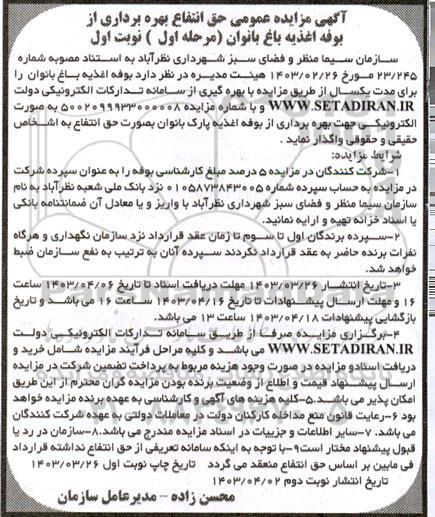 آگهی مزایده عمومی حق انتفاع بهره برداری از
بوفه اغذیه باغ بانوان (مرحله اول ) نوبت اول
سازمان سیما منظر و فضای سبز شهرداری نظرآباد به استناد مصوبه شماره
۲۳/۲۴۵ مورخ ۱۴۰۳/۰۲/۲۶ هیئت مدیره در نظر دارد بوفه اغذیه باغ بانوان را
برای مدت یکسال از طریق مزایده با بهره گیری از سامانه تدارکات الکترونیکی دولت
WWW.SETADIRAN.IR و با شماره مزایده ۵۰۰۲۰۹۹۹۳۳۰۰۰۰۰۸ به صورت
الکترونیکی جهت بهره برداری از بوفه اغذیه پارک بانوان بصورت حق انتفاع به اشخاص
حقیقی و حقوقی واگذار نماید .
شرایط مزایده:
۱–شرکت کنندگان در مزایده ۵ درصد مبلغ کارشناسی بوفه را به عنوان سپرده شرکت
در مزایده به حساب سپرده شماره ۰۱۰۵۸۷۳۸۴۳۰۰۵ نزد بانک ملی شعبه نظرآباد به نام
سازمان سیما منظر و فضای سبز شهرداری نظرآباد با واریز و یا معادل آن ضمانتنامه بانکی
یا اسناد خزانه تهیه و ارایه نمائید.
۲–سپرده برندگان اول تا سوم تا زمان عقد قرارداد نزد سازمان نگهداری و هرگاه
نفرات برنده حاضر به عقد قرارداد نگردند سپرده آنان به ترتیب به نفع سازمان ضبط
خواهد شد.
۳–تاریخ انتشار ۱۴۰۳/۰۳/۲۶ مهلت دریافت اسناد تا تاریخ ۱۴۰۳/۰۴/۰۶ ساعت
۱۶ و مهلت ارسال پیشنهادات تا تاریخ ۱۴۰۳/۰۴/۱۶ ساعت ۱۶ می باشد و تاریخ
بازگشایی پیشنهادات ۱۴۰۳/۰۴/۱۸ ساعت ۱۳ می باشد.
۴–برگزاری مزایده صرفا از طریق سامانه تدارکات الکترونیکی دولت
WWW.SETADIRAN.IR می باشد و کلیه مراحل فرآیند مزایده شامل خرید و
دریافت اسناد مزایده در صورت وجود هزینه مربوط به پرداخت تضمین شرکت در مزایده
ارسال پیشنهاد قیمت و اطلاع از وضعیت برنده بودن مزایده گران محترم از این طریق
امکان پذیر می باشد.۵–کلیه هزینه های آگهی و کارشناسی به عهده برنده مزایده خواهد
بود ۶–رعایت قانون منع مداخله کارکنان دولت در معاملات دولتی به عهده شرکت کنندگان
می باشد. ۷–سایر اطلاعات و جزییات در اسناد مزایده مندرج می باشد.۸–سازمان در رد یا
قبول پیشنهاد مختار است۹–با توجه به اینکه سامانه تعریفی از حق انتفاع نداشته قرارداد
فی مابین بر اساس حق انتفاع منعقد می گردد تاریخ چاپ نوبت اول ۱۴۰۳/۰۳/۲۶
تاریخ انتشار نوبت دوم ۱۴۰۳/۰۴/۰۲
محسن زاده – مدیرعامل سازمان